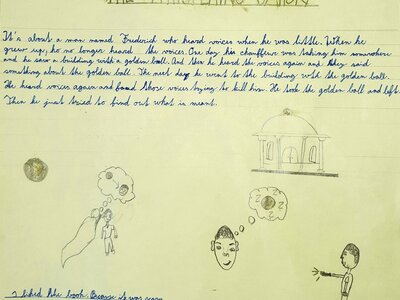 It's about a man named Frederick who heard voices when he was little. When he
grew up, he no longer heard the voices. One day his chauffeur was taking him somewhere
and he saw a building with a golden ball. And then he heard the voices again and they said
something about the golden ball. The next day he went to the building with the golden ball.
He heard voices again and found those voices trying to kill him. He took the golden ball and left.
Then he just tried to find out what is meant.
? ? ?
I liked the book. Because it was very